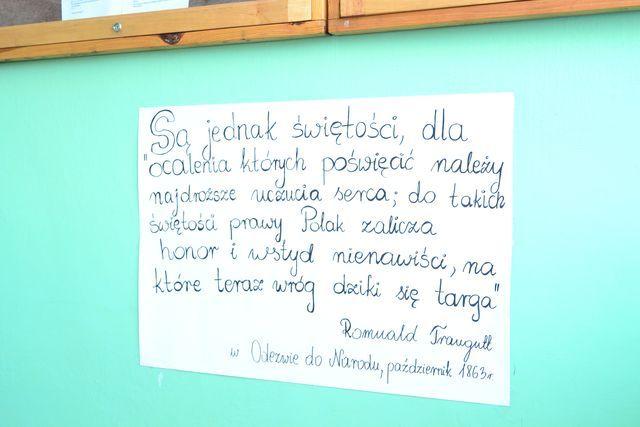 Są jednak świętości, dla
"ocalenia których poświęcić należy
najdroższe uczucia serca; do takich
świętości prawy Polak zalicza
honor i wstyd nienawiści, na
które teraz wróg dziki się targa"
Romuald Traugutt
w Odezwie do Narodu, październik 1863r.